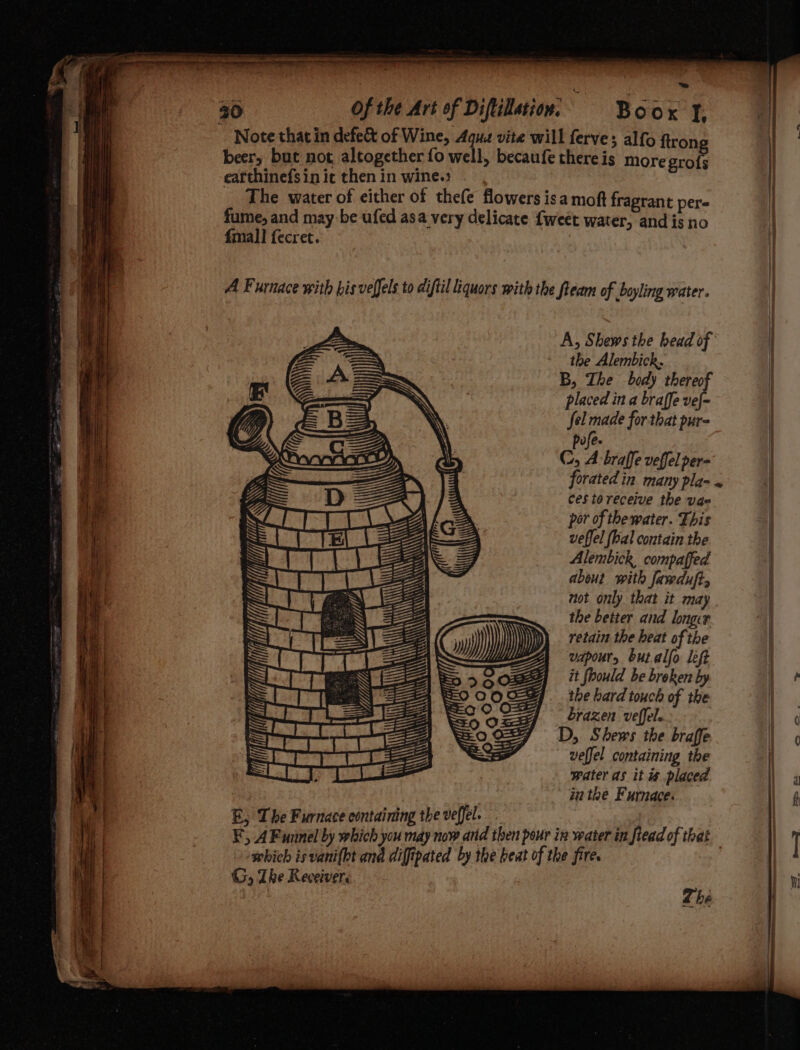 30 Of the Art of Diſtillation. BOOK I.
Note that in defect of Wine, Aqua vitæ will ſerve; alſo ſtrong
beer, but not altogether ſo well, becauſe there is more groſs
earthineſs in it then in wine.
The water of either of theſe flowers is a moſt fragrant per-
fume, and may be uſed as a very delicate ſweet water, and is no
ſmall ſecret.
A Furnace with his veſſels to diſtil liquors with the ſteam of boyling water.
A, Shews the head of
the Alembick.
B, The body thereof
placed in a braſſe veſ-
ſel made for that pur-
poſe.
C, A braſſe veſſel per-
forated in many pla-
ces to receive the va-
por of the water. This
veſſel ſhal contain the
Alembick, compaſſed
about with ſawduſt,
not only that it may
the better and longer
retain the heat of the
vapour, but alſo leſt
it ſhould be broken by
the hard touch of the
brazen veſſel.
D, Shews the braſſe
veſſel containing the
water as it is placed
in the Furnace.
E, The Furnace containing the veſſel.
F, A Funnel by which you may now and then pour in water in ſtead of that
which is vaniſht and diſſipated by the heat of the fire.
G, The Receiver.
The
A
F
B
C
D
G
E